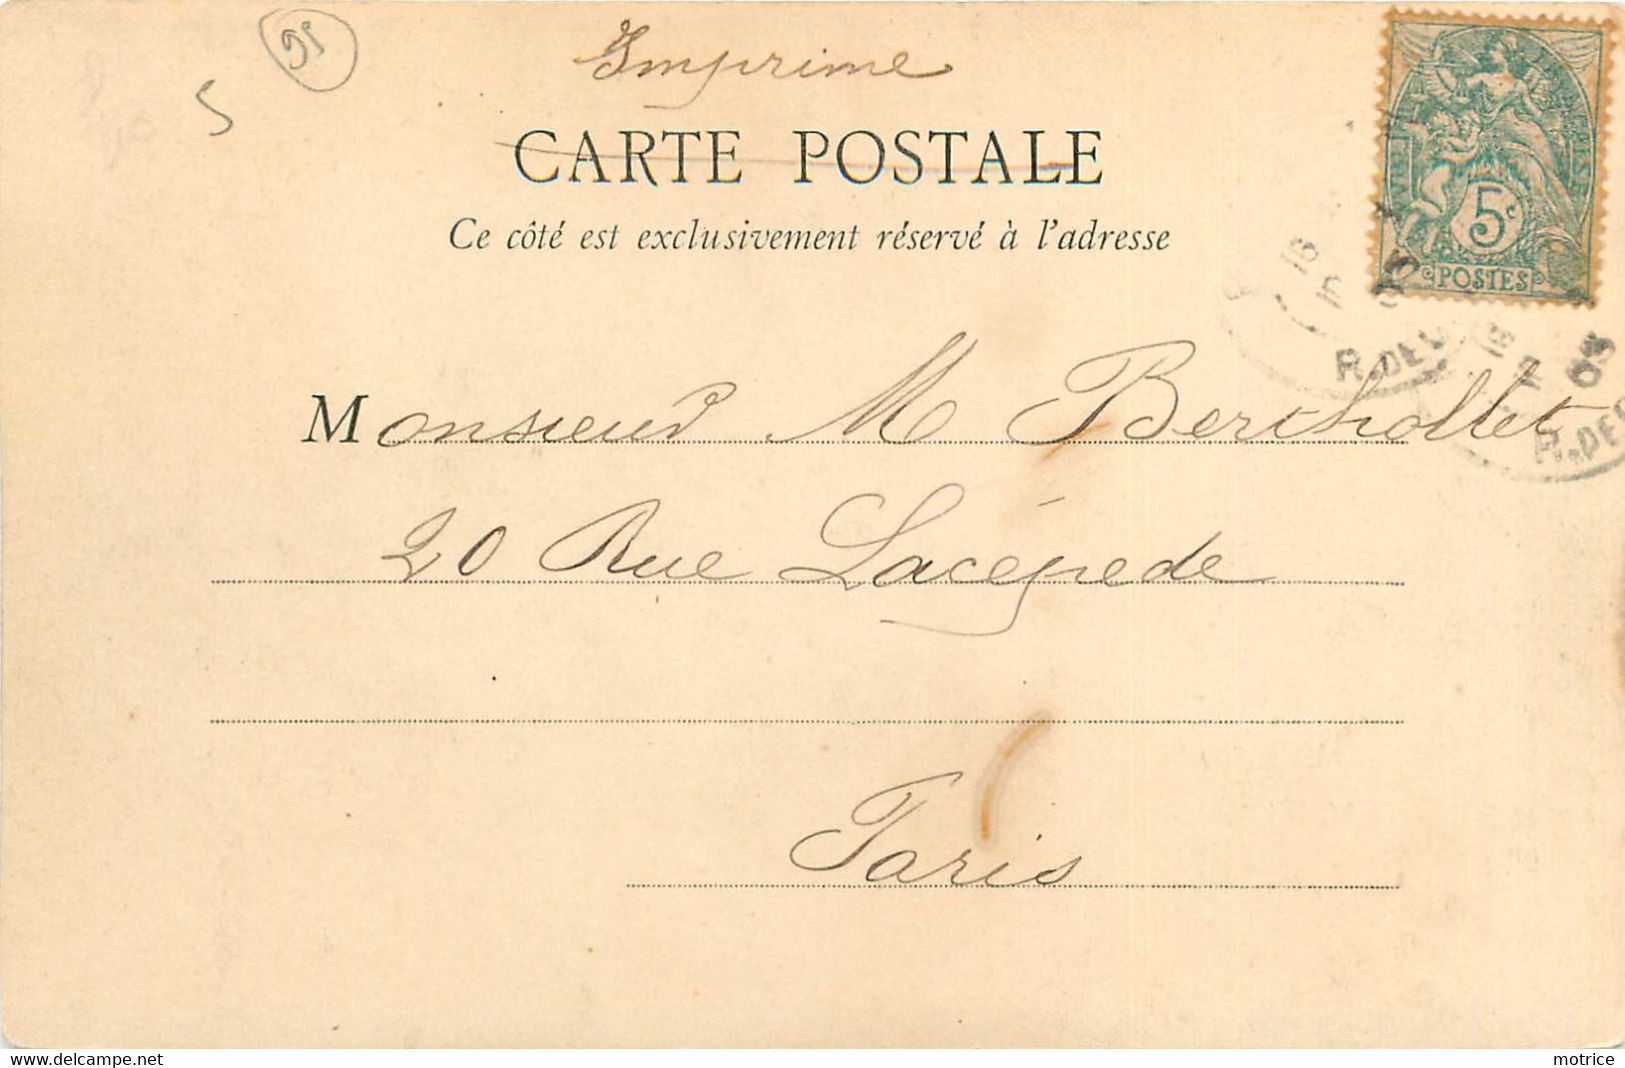 95
5
Imprime
CARTE POSTALE
Ce côté est exclusivement réservé à l'adresse
5c
POSTES
16
05
R.DE
18
05
R.DE
Monsieur M Berthollet
20 Rue Lacépede
Paris
www.delcampe.net
motrice